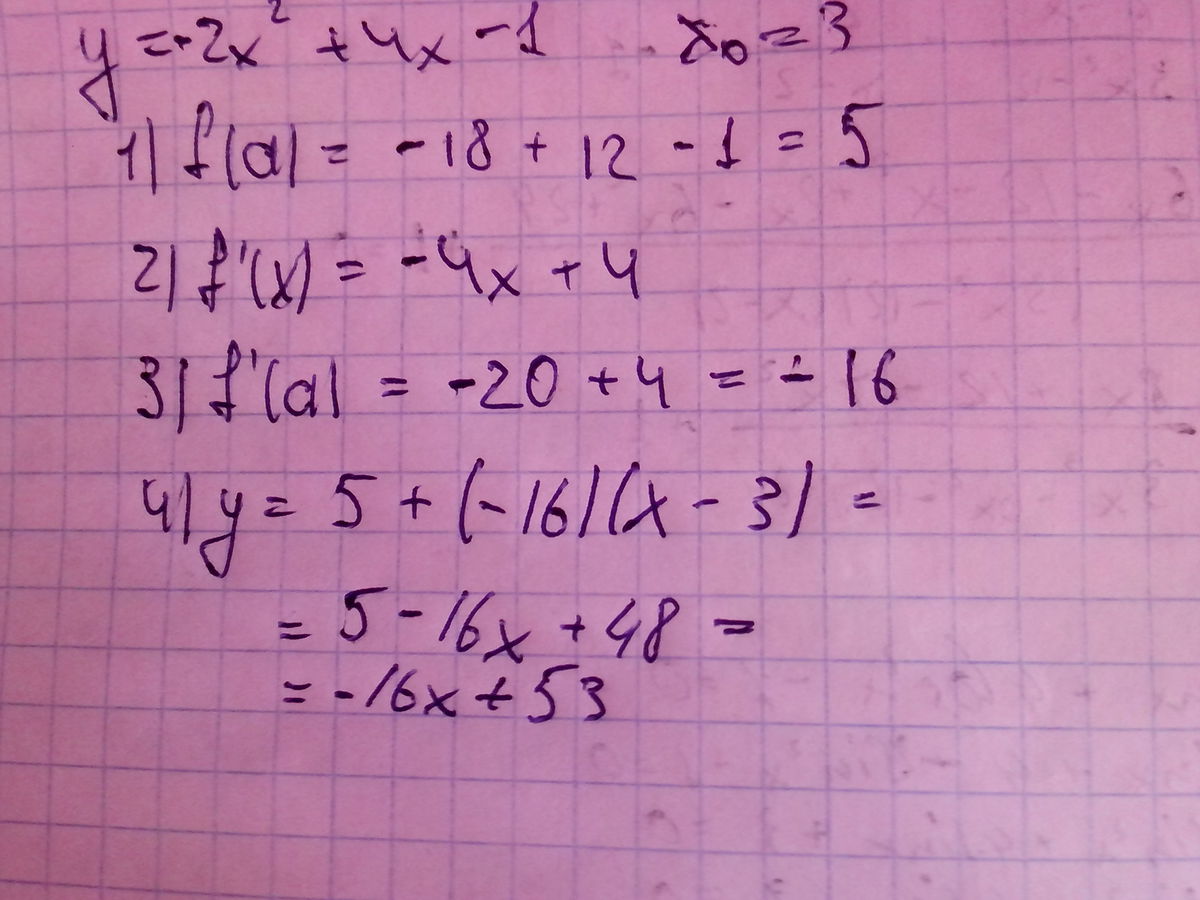 y = -2x² + 4x - 1 x₀ = 3
1) f(a) = -18 + 12 - 1 = 5
2) f'(x) = -4x + 4
3) f'(a) = -20 + 4 = -16
4) y = 5 + (-16)(x - 3) =
= 5 - 16x + 48 =
= -16x + 53